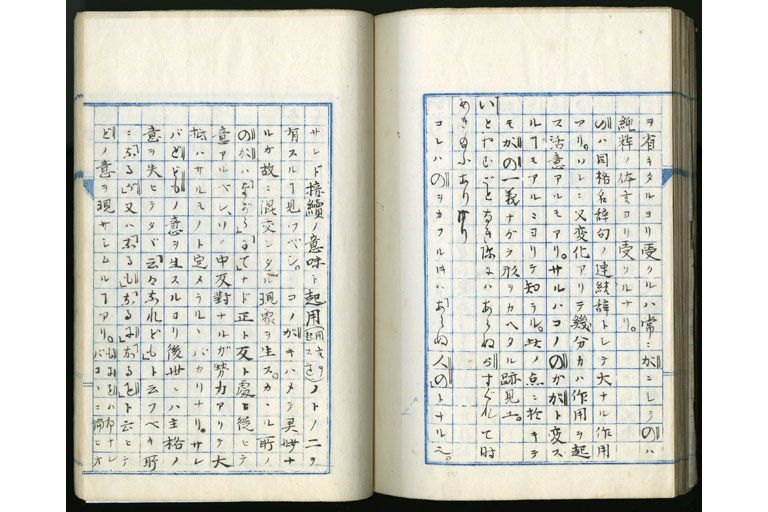 ヲ省キタルヨリ受クルハ常ニがニシテのハ
純粋ノ体言ヨリ受クルナリ。
のハ同格名辞句ノ連結辞トシテ大ナル作用
アリ。ソレニ又変化アリテ幾分カハ作用ヲ起
ス活意アルモアリ。サルハコノのガがト変ス
ルヿモアルニヨリテ知ラル。此ノ点ニ於キテ
モがのノ一義ナガラ形ヲカヘタル跡見ユ。
いとやむごとなき際にはあらぬがすぐれて時
めき給ふありけり
コレハのヲカフル時ハあらぬ人のトナル也。
サレド接續ノ意味ト起用ノトノ二ヲ
有スルヿ見ツベシ。コノがキハメテ異妙ナ
ルガ故ニ混交シタル現象ヲ生ス。カヽル所ノ
のガハ ナド正ト反ト處ニ従ヒ
意アルベシ。ソノ中反對ナルガ勢力アリテ大
抵ハサルモノト定メラルヽバカリナリ。サレ
バどどもノ意ヲ生スルヨリ後世ニハ主格ノ
意ヲ失ヒテタヾ云々なれどもト云フベキ所
ニなるが又ハなるもなるになるをト云ヒテ
どノ意ヲ現サシムルヿアリ。